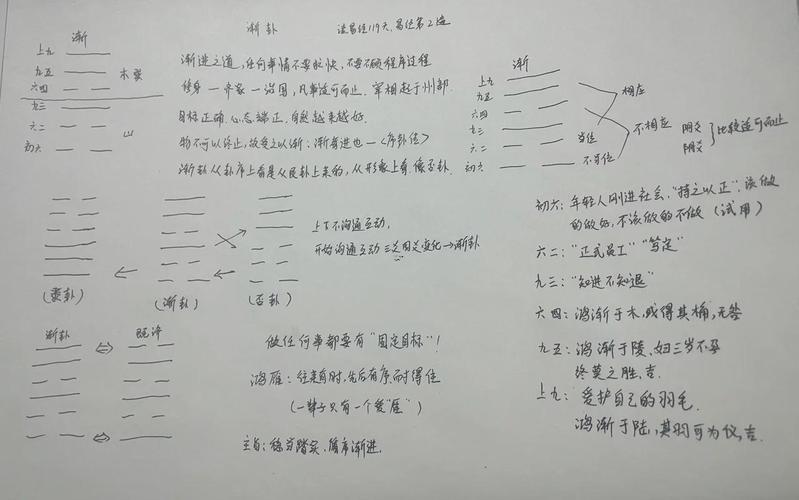 渐卦
读易经119天,易经第2遍
渐
上九
九五
六四
九三
六二
初六
木 巽
山
渐进之道,任何事情不要贪快,不要不顾程序过程
修身一齐家一治国,凡事适可而止.宰相起于州部.
目标正确.心态端正.自然越来越好.
物不可以终止,故受之以渐;渐者进也一《序卦传》
渐卦从卦序上看是从艮卦上来的,从形象上看.像否卦.
渐
上九
九五
六四
九三
六二
初六
相应
不相应
当位
不当位
阴爻
阴爻
比较适可而止
(渐卦)
(否卦)
上下不沟通互动,
开始沟通互动 三爻四爻变化→渐卦
初六:年轻人刚进社会,"持之以正",该做
的做好,不该做的不做(试用)
六二:"正式员工""笃定"
九三:"知进不知退"
六四:鸿渐于木,或得其桷,无咎
九五:鸿渐于陵,妇三岁不孕
终莫之胜,吉.
上九:爱护自己的羽毛.
鸿渐于陆,其羽可为仪,吉.
渐卦
既济
做任何事都要有"固定目标"!
鸿雁:往来有时,先后有序,而时得位
(一辈子只有一个爱"雁")
主旨:稳当踏实、循序渐进.